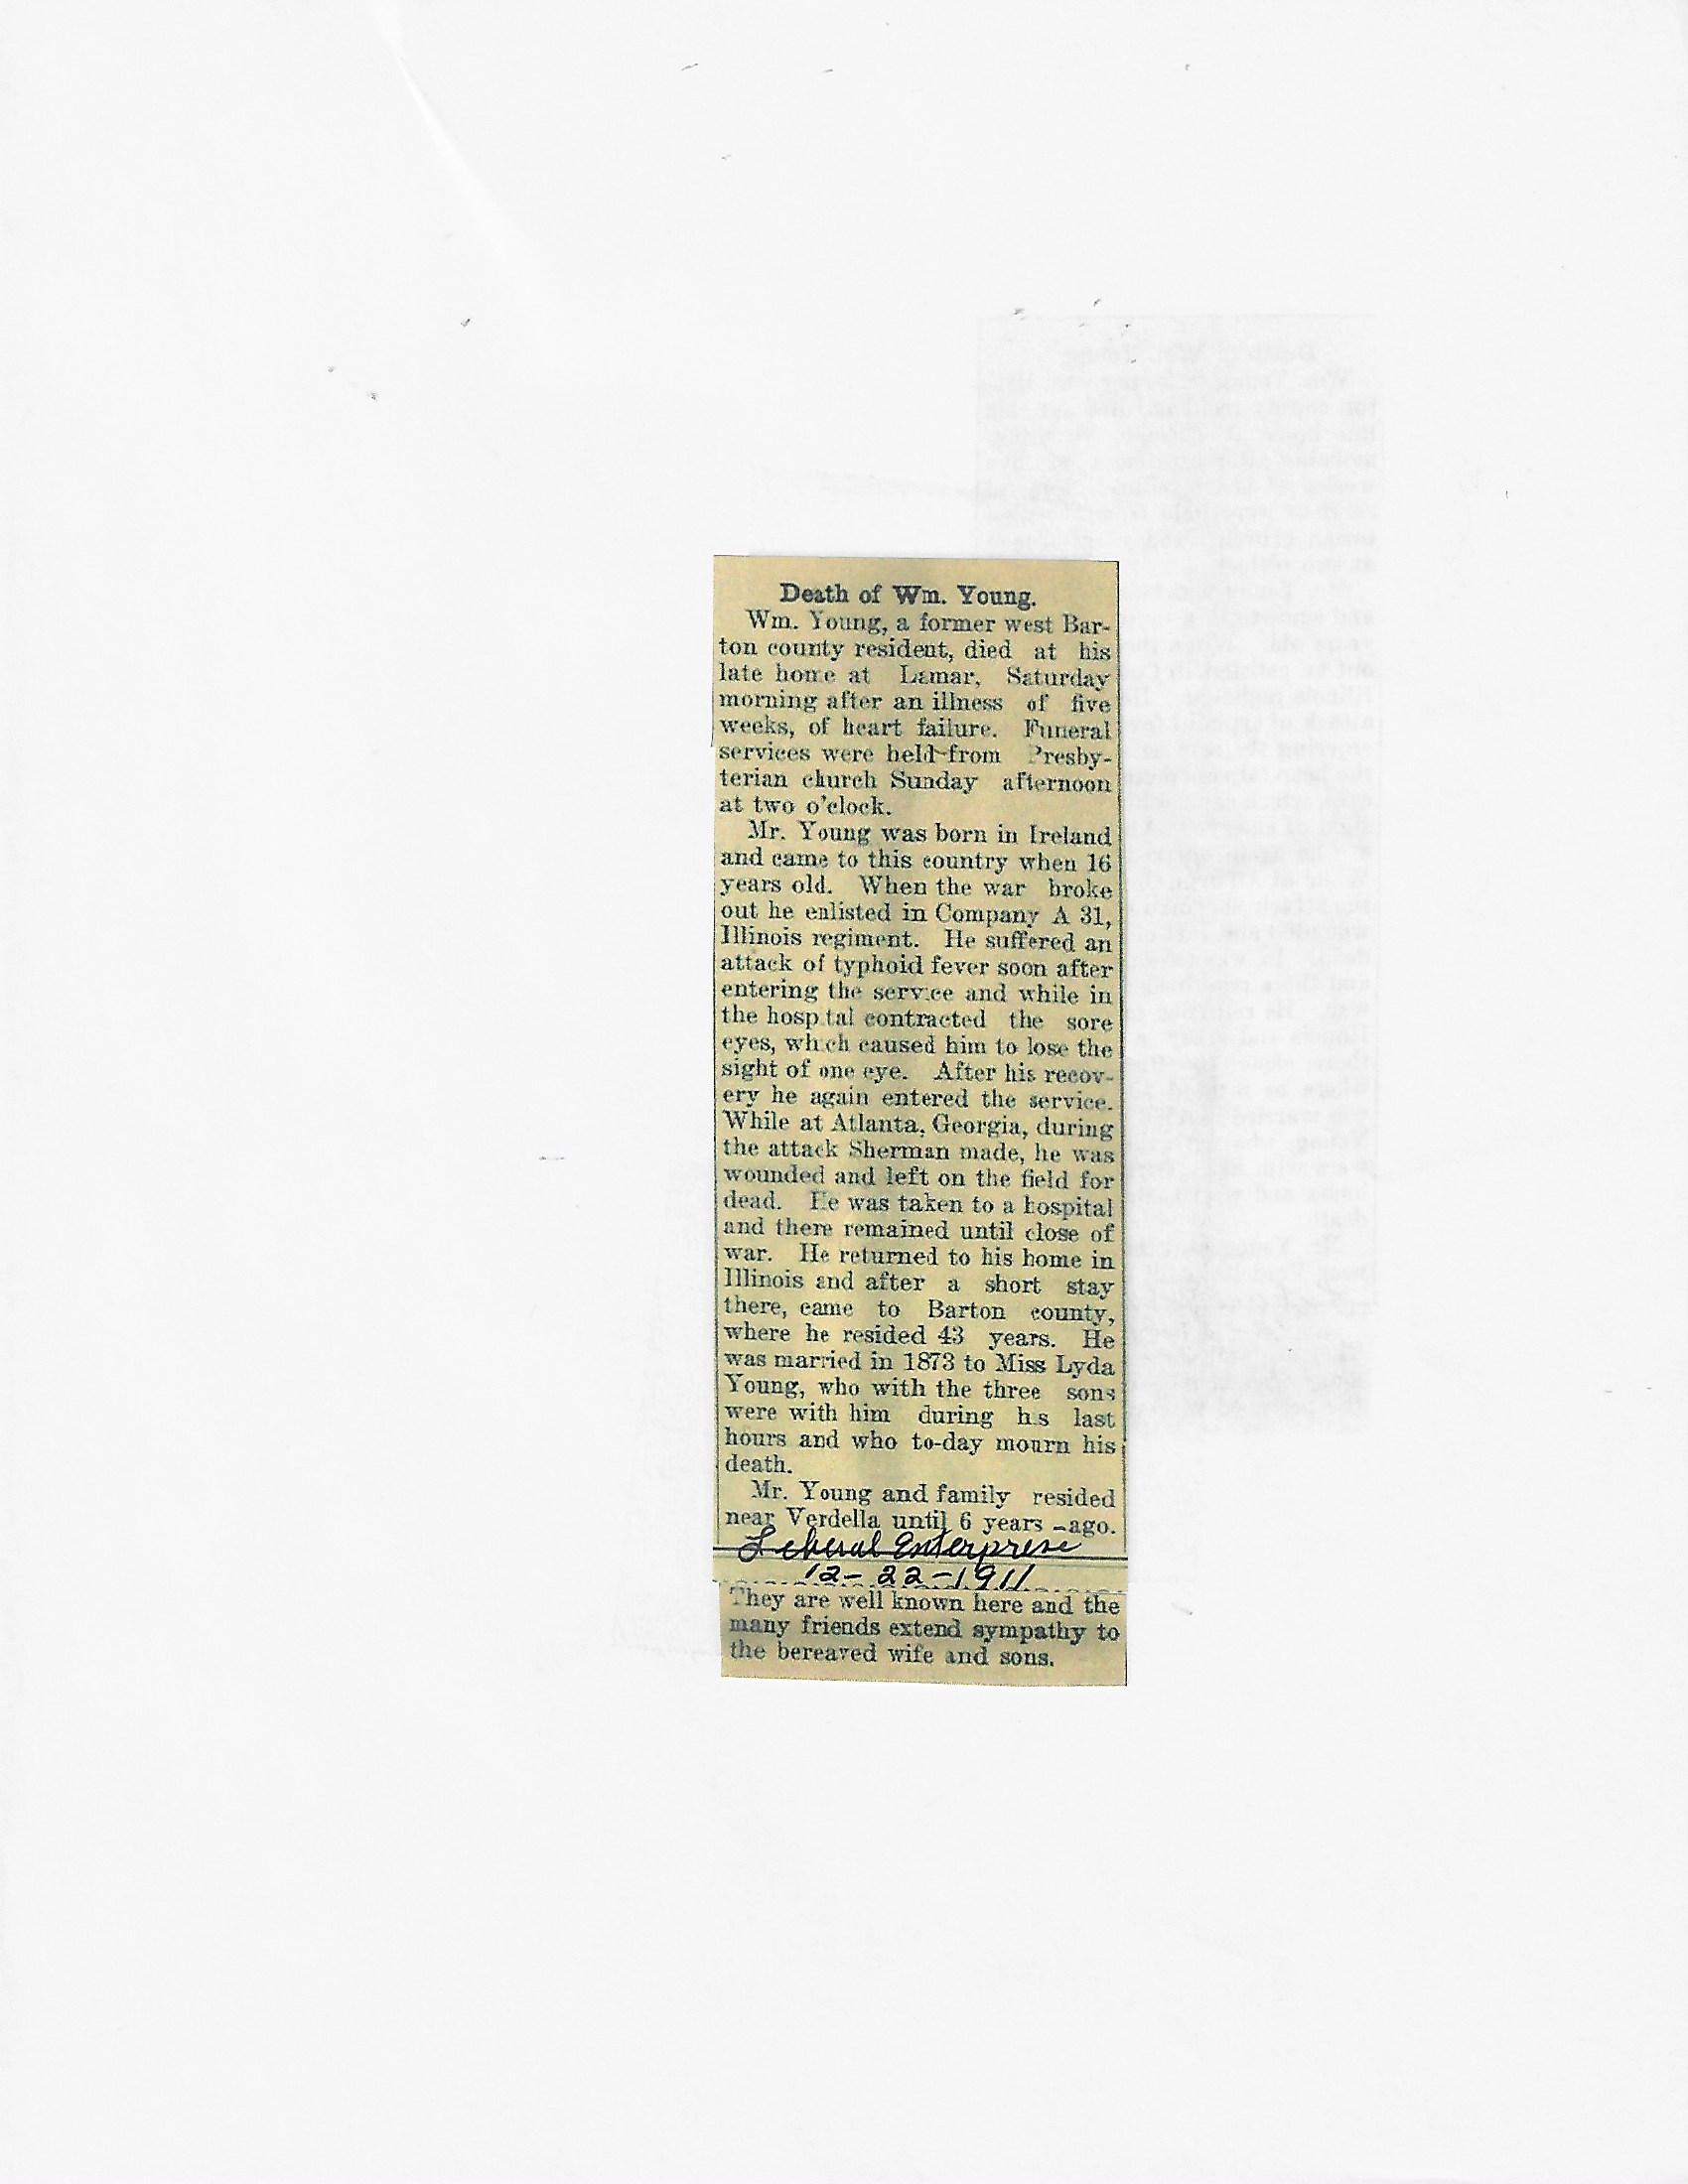 Death of Wm. Young.
Wm. Young, a former west Bar-
ton county resident, died at his
late home at Lamar, Saturday
morning after an illness of five
weeks, of heart failure. Funeral
services were held from Presby-
terian church Sunday afternoon
at two o'clock.
Mr. Young was born in Ireland
and came to this country when 16
years old. When the war broke
out he enlisted in Company A 31,
Illinois regiment. He suffered an
attack of typhoid fever soon after
entering the service and while in
the hospital contracted the sore
eyes, which caused him to lose the
sight of one eye. After his recov-
ery he again entered the service.
While at Atlanta, Georgia, during
the attack Sherman made, he was
wounded and left on the field for
dead. He was taken to a hospital
and there remained until close of
war. He returned to his home in
Illinois and after a short stay
there, came to Barton county,
where he resided 43 years. He
was married in 1873 to Miss Lyda
Young, who with the three sons
were with him during h.s last
hours and who to-day mourn his
death.
Mr. Young and family resided
near Verdella until 6 years ago.
Liberal Enterprise
12-22-1911
They are well known here and the
many friends extend sympathy to
the bereaved wife and sons.